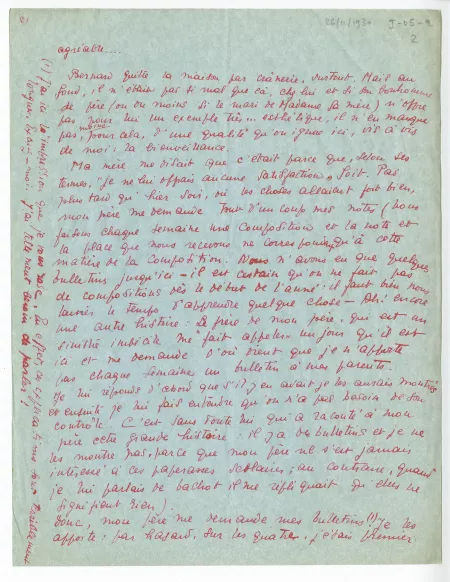 2)
26/11/1930
J-05-2
2
agréable....
Bernard quitte la maison par crânerie, surtout. Mais au
fond, il n'était pas si mal que çà, chez lui et si son bonhomme
de père (ou au moins si le mari de Madame sa mère) n'offre
pas pour lui un exemple très... esthétique, il n'en manque
pas, même pour cela, d'une qualité qu'on ignore ici, vis à vis
de moi : la bienveillance.
Ma mère me disait que c'était parce que, selon ses
termes, "je ne lui offrais aucune satisfaction". Soit. Pas
plus tard qu'hier soir, où les choses allaient fort bien,
mon père me demande tout d'un coup mes notes (nous
faisons chaque semaine une composition et la note et
la place que nous recevons ne correspond qu'à cette
matière de la composition. Nous n'avons eu que quelques
bulletins jusqu'ici – il est certain qu'on ne fait pas
de compositions dès le début de l'année : il faut bien nous
laisser le temps d'apprendre quelque chose – Ah! encore
une autre histoire : Le frère de mon père, qui est un
sinistre imbécile me fait appeler un jour qu'il est
ici et me demande d'où vient que je n'apporte
pas chaque semaine un bulletin à mes parents.
Je lui réponds d'abord que s'il y en avait je les aurais montrés
et ensuite je lui fais entendre qu'on n'a pas besoin de son
contrôle. C'est sans doute lui qui a raconté à mon
père cette grande histoire : il y a des bulletins et je ne
les montre pas, parce que mon père ne s'est jamais
intéressé à ces paperasses scolaires ; au contraire, quand
je lui parlais de bachot il me répliquait qu'elles ne
signifient rien)
Donc, mon père me demande mes bulletins (!!) Je les
apporte : par hasard, sur les quatre, j'étais premier
(1) J'ai l'impression que je vous rase, en effet, en
longues. Excusez-moi j'ai tellement besoin de parler!